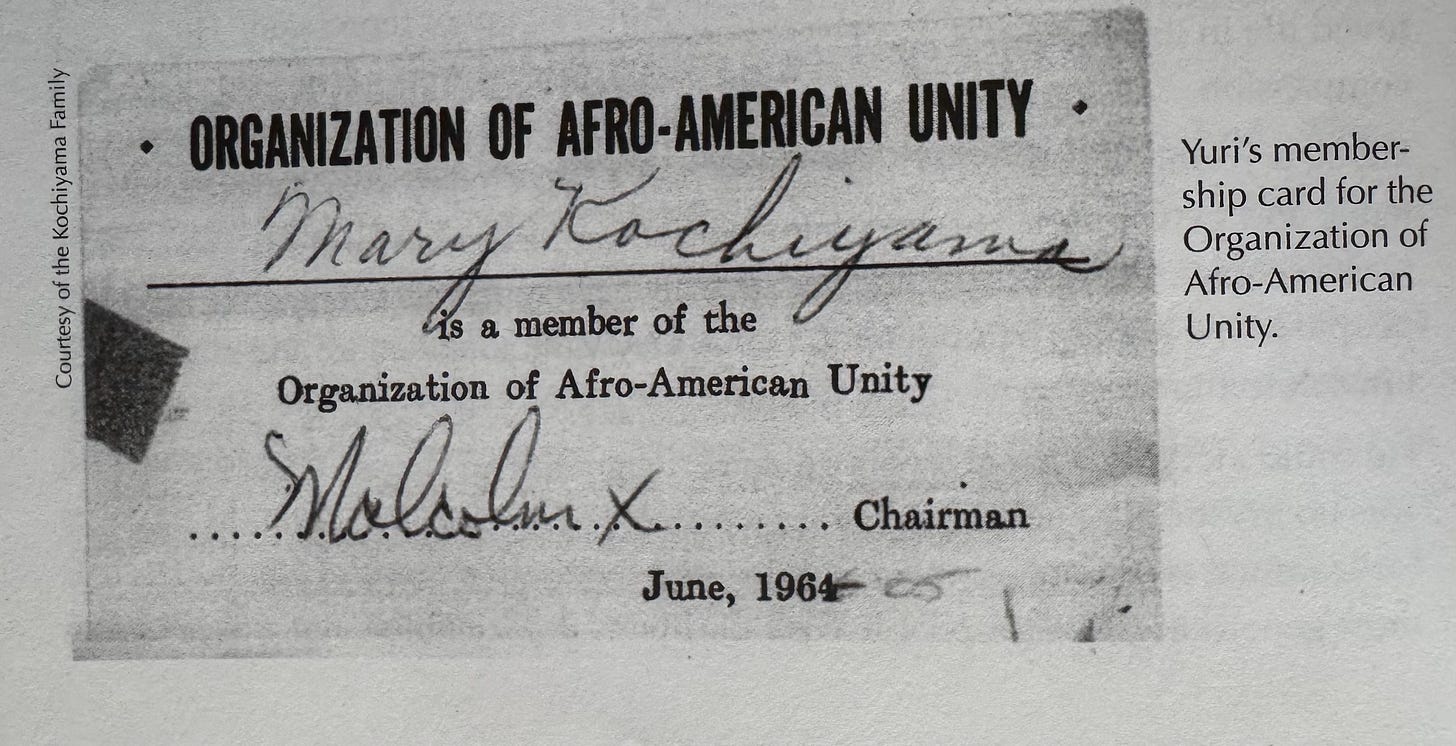 Courtesy of the Kochiyama Family
• ORGANIZATION OF AFRO-AMERICAN UNITY •
Mary Kochiyama
is a member of the
Organization of Afro-American Unity
.....Malcolm X......... Chairman
June, 1964
Yuri’s member-
ship card for the
Organization of
Afro-American
Unity.